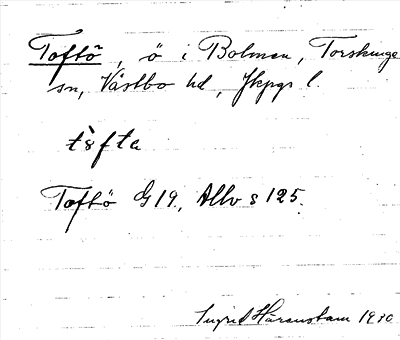 Toftö, ö i Bolmen, Torskinge
sn, Västbo hd, Jkpgs l.
tòfta
Toftö G 19, Allv s 125.
Ingrid Häranstam 1930